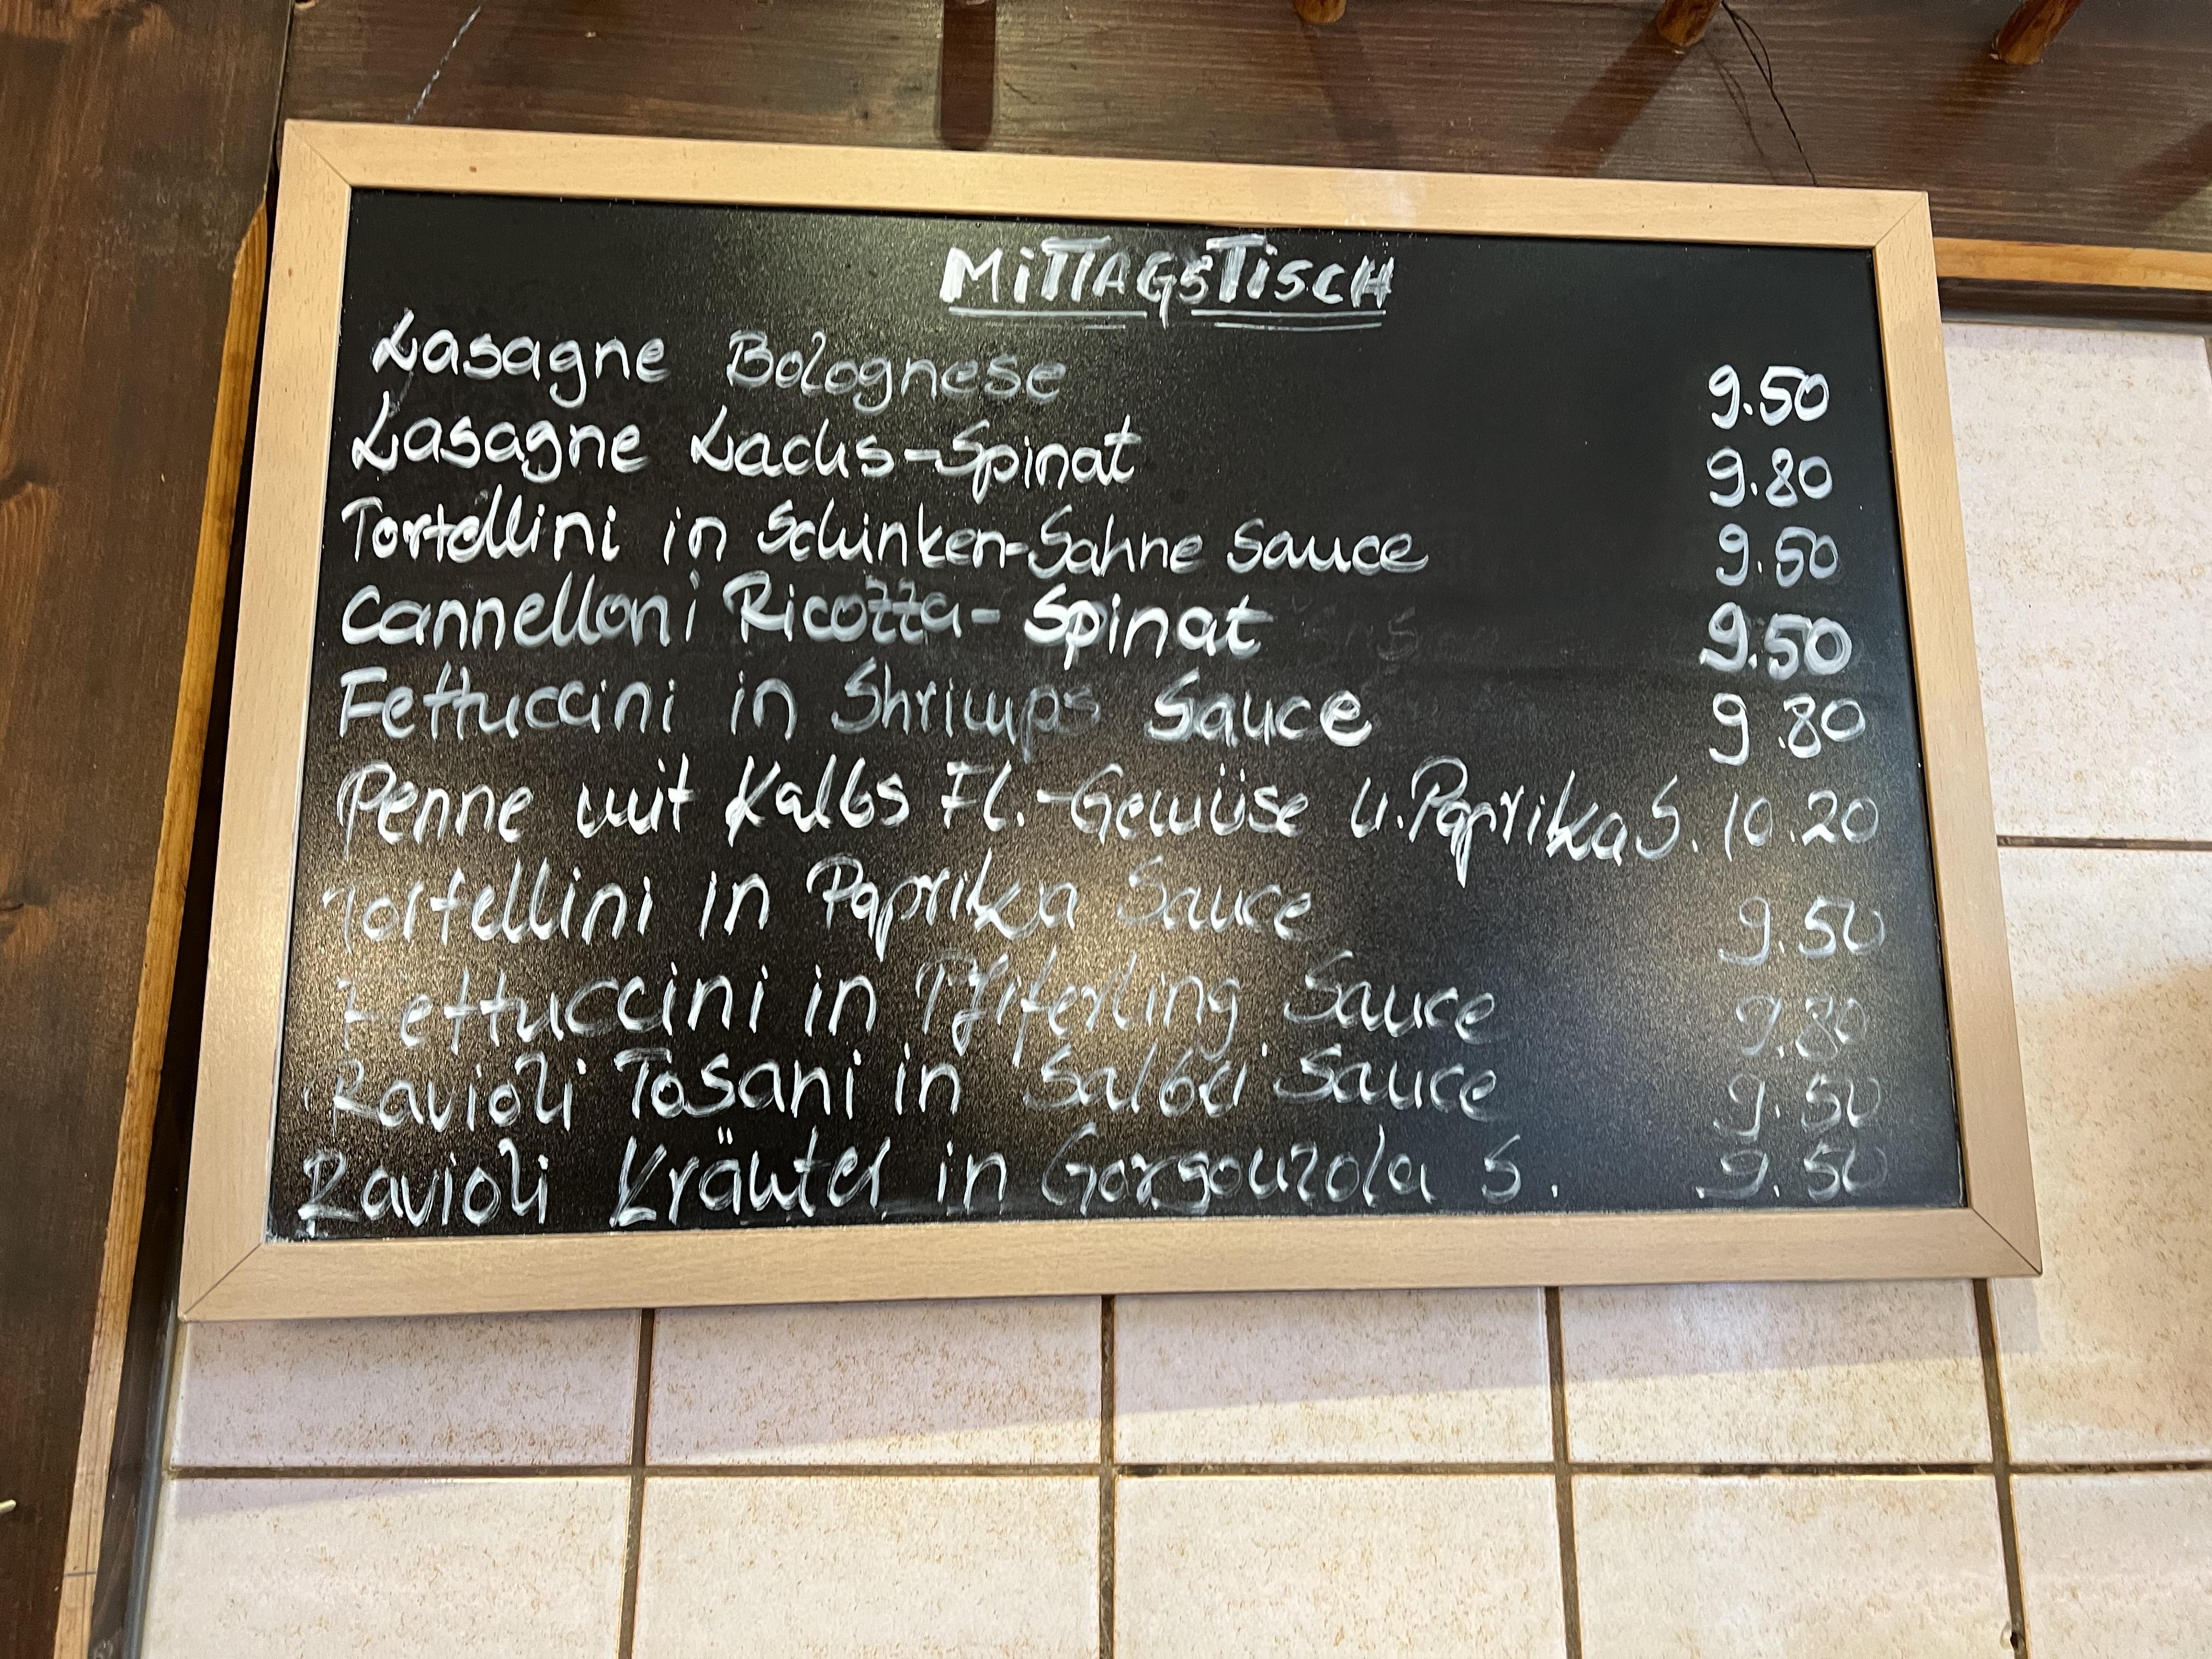 MiTTAGSTiSCH
Lasagne Bolognese 9.50
Lasagne Lachs-Spinat 9.80
Tortellini in Schinken-Sahne Sauce 9.50
Cannelloni Ricotta-Spinat 9.50
Fettuccini in Shrimps Sauce 9.80
Penne mit Kalbs Fl.-Gemüse u. Paprika S. 10.20
Tortellini in Paprika Sauce 9.50
Fettuccini in Pfiferling Sauce 9.80
Ravioli Tosani in Salbei Sauce 9.50
Ravioli Kräuter in Gorgonzola S. 9.50